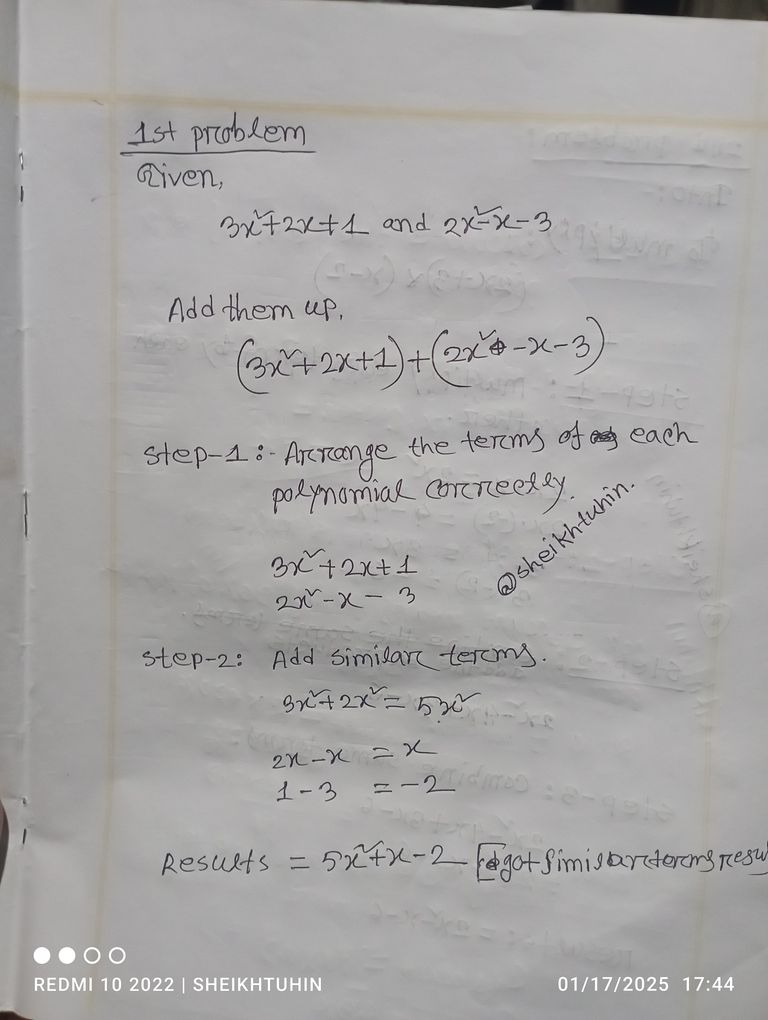 1st problem
Given,
3x²+2x+1 and 2x²-x-3
Add them up,
(3x²+2x+1)+(2x² -x-3)
Step-1:- Arrange the terms of each
polynomial correctly.
3x²+2x+1
2x²-x-3
@sheikhtuhin.
Step-2: Add similar terms.
3x²+2x²=5x²
2x-x =x
1-3 =-2
Results = 5x²+x-2 [ got similar terms resu
REDMI 10 2022 | SHEIKHTUHIN
01/17/2025 17:44